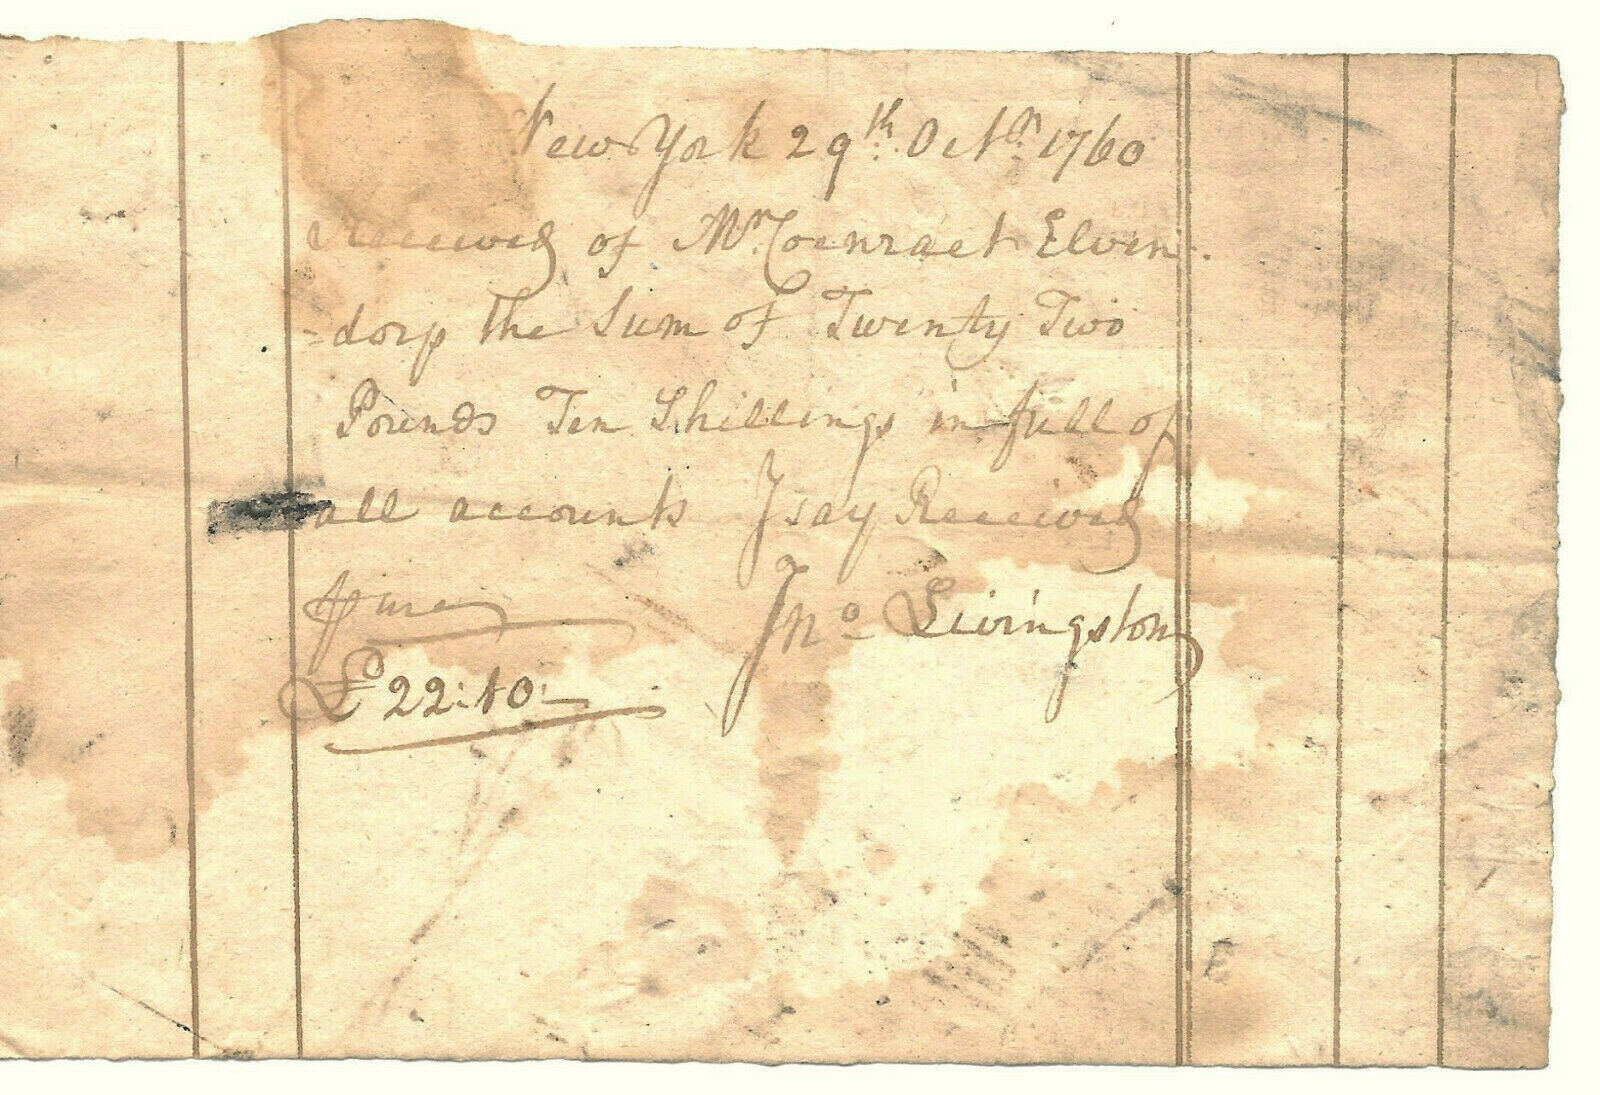 New York 29th Octbr 1760
Received of Mr Coenraet Elven
-dorp the Sum of Twenty Two
Pounds Ten Shillings in full of
all accounts I say Received
₱ me
Jno Livingston
£o 22:10:-